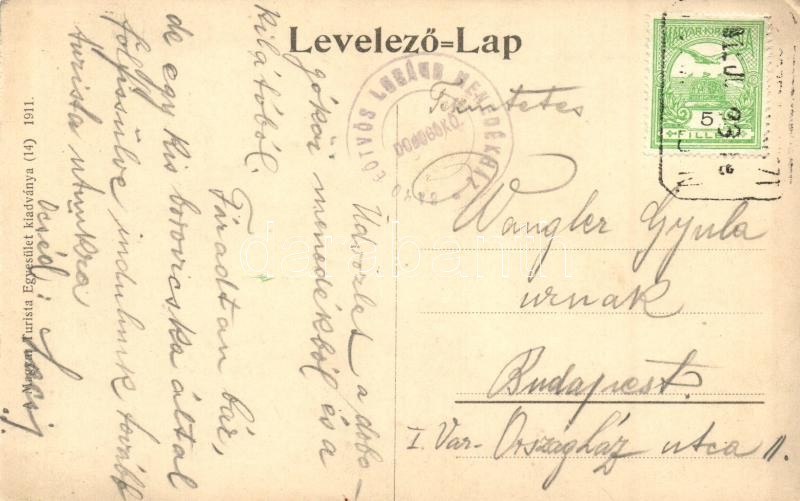 Levelező=Lap
Üdvözlet a dobo-
gókői menedékből és a
kilátóból.
Fáradtan bár,
de egy kis borovicska által
felfrissülve indulunk tovább
turista utunkra
Öcséd:
Magyar Turista Egyesület kiadványa (14) 1911.
BÁRÓ EÖTVÖS LORÁND MENEDÉKHÁZ
DOBOGÓKŐ
MAGYAR KIR. POSTA
5
FILLÉR
Tekintetes
Wangler Gyula
urnak
Budapest.
I. Vár- Országház utca 11.
darabanth